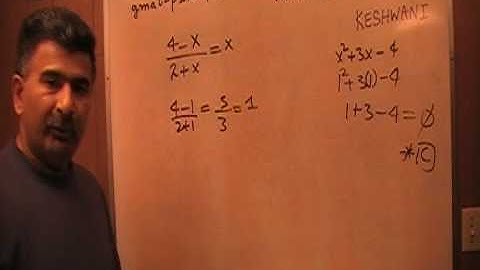 gmat-p
KESHWANI
4-x/2+x = x
x²+3x-4
1²+3(1)-4
4-1/2+1 = 3/3 = 1
1+3-4=0
*C